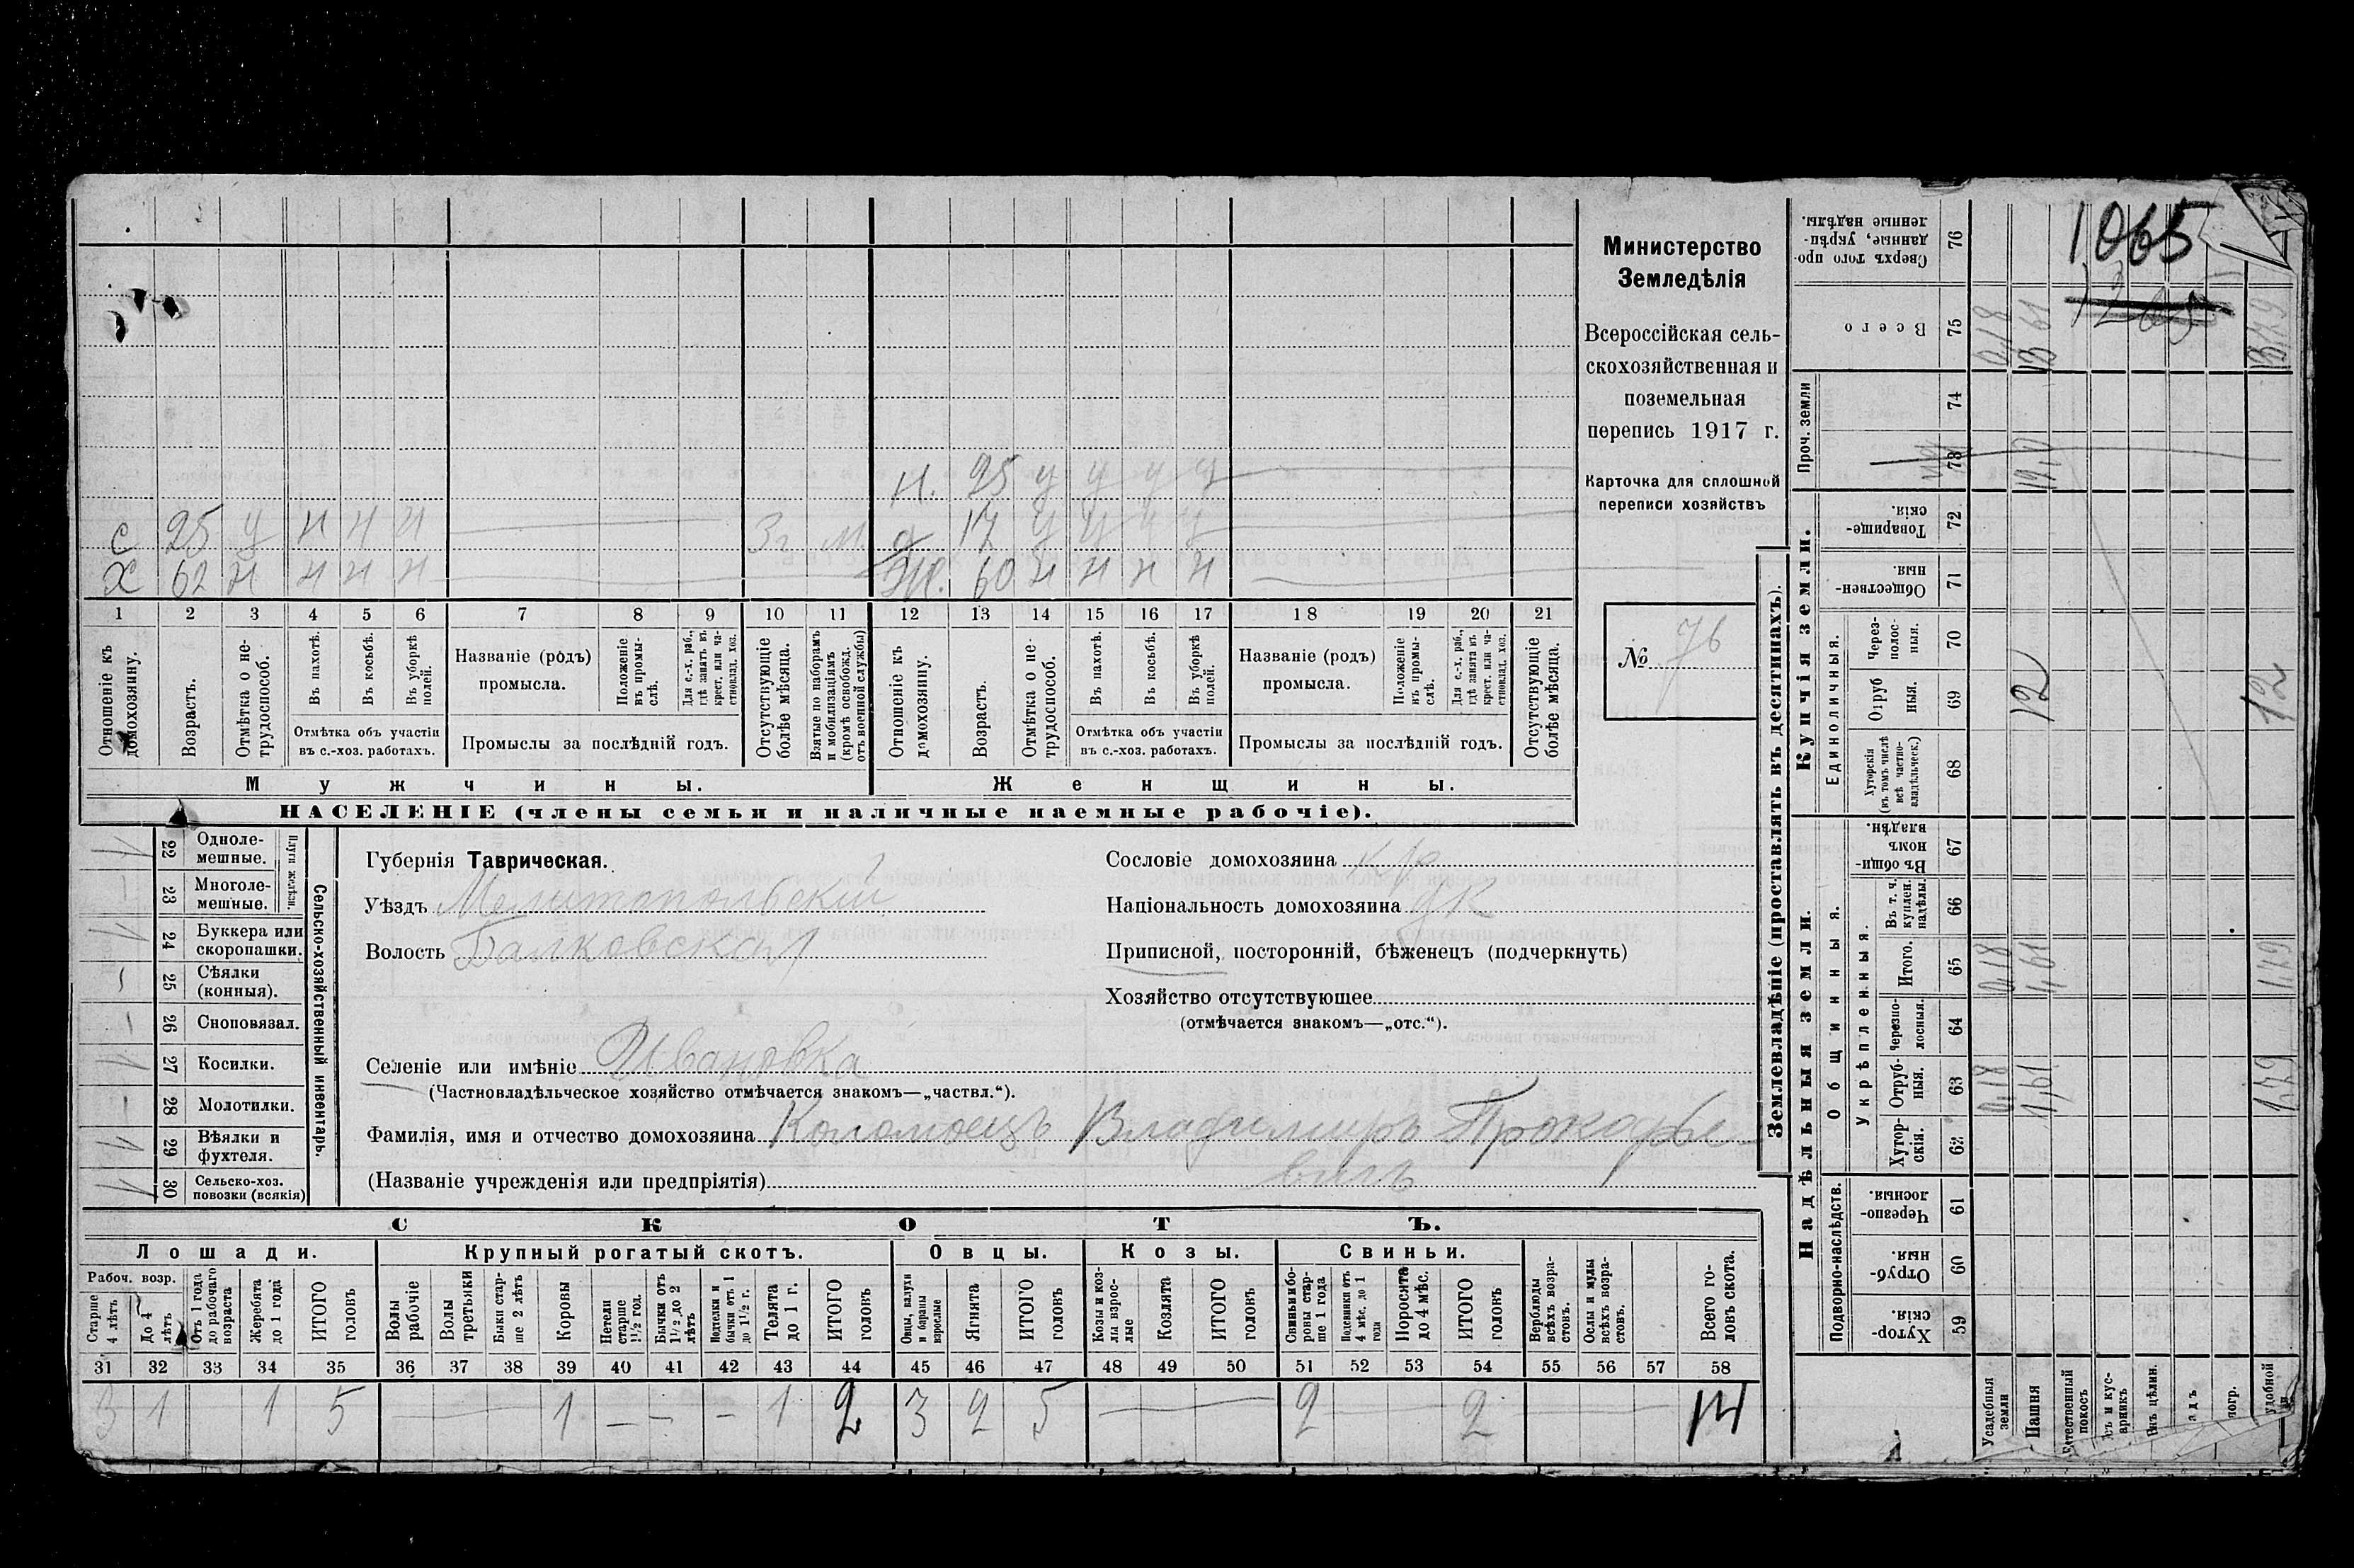 Министерство
Земледѣлія
Всероссійская сель-
скохозяйственная и
поземельная
перепись 1917 г.
Карточка для сплошной
переписи хозяйствъ
№ 76
1065
Н. 25 у у у у
С 25 у н н н 3 г м. д 17 у у у у
Х 62 н н н н Ж. 60 н н н н
1 2 3 4 5 6 7 8 9 10 11 12 13 14 15 16 17 18 19 20 21
Отношеніе къ домохозяину.
Возрастъ.
Отмѣтка о не-трудоспособ.
Въ пахотѣ.
Въ косьбѣ.
Въ уборкѣ полей.
Отмѣтка объ участіи
въ с.-хоз. работахъ.
Названіе (родъ)
промысла.
Положеніе въ промы-слѣ.
Для с.-х. раб., гдѣ занятъ въ крест. или ча-стновлад. хоз.
Промыслы за послѣдній годъ.
Отсутствующіе болѣе мѣсяца.
Взятые по наборамъ и мобилизаціямъ (кромѣ освобожд. отъ военной службы)
Отношеніе къ домохозяину.
Возрастъ.
Отмѣтка о не-трудоспособ.
Въ пахотѣ.
Въ косьбѣ.
Въ уборкѣ полей.
Отмѣтка объ участіи
въ с.-хоз. работахъ.
Названіе (родъ)
промысла.
Положеніе въ промы-слѣ.
Для с.-х. раб., гдѣ занята въ крест. или ча-стновлад. хоз.
Промыслы за послѣдній годъ.
Отсутствующіе болѣе мѣсяца.
Мужчины. Женщины.
НАСЕЛЕНІЕ (члены семьи и наличные наемные рабочіе).
22 Одноле-мешные.
23 Многоле-мешные.
Плуги желѣзн.
24 Буккера или скоропашки.
25 Сѣялки (конныя).
26 Сноповязал.
27 Косилки.
28 Молотилки.
29 Вѣялки и фухтеля.
30 Сельско-хоз. повозки (всякія)
Сельско-хозяйственный инвентарь.
Губернія Таврическая.
Уѣздъ Мелитопольскій
Волость Балковская
Селеніе или имѣніе Ивановка
(Частновладѣльческое хозяйство отмѣчается знакомъ—„частвл.“).
Фамилія, имя и отчество домохозяина Коломоецъ Владимиръ Прокофье
вичъ
(Названіе учрежденія или предпріятія)
Сословіе домохозяина кр
Національность домохозяина
Приписной, посторонній, бѣженецъ (подчеркнуть)
Хозяйство отсутствующее
(отмѣчается знакомъ—„отс.“).
СКОТЪ.
Лошади. Крупный рогатый скотъ. Овцы. Козы. Свиньи.
Рабоч. возр.
Старше 4 лѣтъ
До 4 лѣтъ
Отъ 1 года до рабочаго возраста
Жеребята до 1 года
ИТОГО головъ
Волы рабочіе
Волы третьяки
Быки стар-ше 2 лѣтъ
Коровы
Нетели старше 1½ год.
Бычки отъ 1½ до 2 лѣтъ
Подтелки и бычки отъ 1 до 1½ г.
Телята до 1 г.
ИТОГО головъ
Овцы, валухи и бараны взрослые
Ягнята
ИТОГО головъ
Козы и коз-лы взрос-лые
Козлята
ИТОГО головъ
Свиньи и бо-ровы стар-ше 1 года
Подсвинки отъ 4 мѣс. до 1 года
Поросята до 4 мѣс.
ИТОГО головъ
Верблюды всѣхъ возра-стовъ.
Ослы и мулы всѣхъ возра-стовъ.
Всего го-ловъ скота.
31 32 33 34 35 36 37 38 39 40 41 42 43 44 45 46 47 48 49 50 51 52 53 54 55 56 57 58
3 1 1 5 — 1 — — — 1 2 3 2 5 — 2 — 2 — 14
Землевладѣніе (проставлять въ десятинахъ).
Купчія земли.
Надѣльныя земли.
76 Сверхъ того про-данные, укрѣп-ленные надѣлы.
75 Всего 0,18 13 61 13,79
Проч. земли
74
73
72 Товарище-скія.
71 Обществен-ныя.
Единоличныя.
70 Через-полос-ныя.
69 Отруб ныя. 12 12
68 Хуторскія (въ томъ числѣ всѣ частно-владѣльческ.)
Общинныя.
67 Въ общи-номъ владѣн.
Укрѣпленныя.
66 Въ т. ч. куплен. надѣлы.
65 Итого. 0,18 1,61 1,79
64 Черезпо-лосныя.
63 Отруб-ныя. 0,18 1,61 1,79
62 Хутор-скія.
Подворно-наслѣдств.
61 Черезпо-лосныя.
60 Отруб-ныя
59 Хутор-скія
Усадебныя земли
Пашня
Естественный покосъ